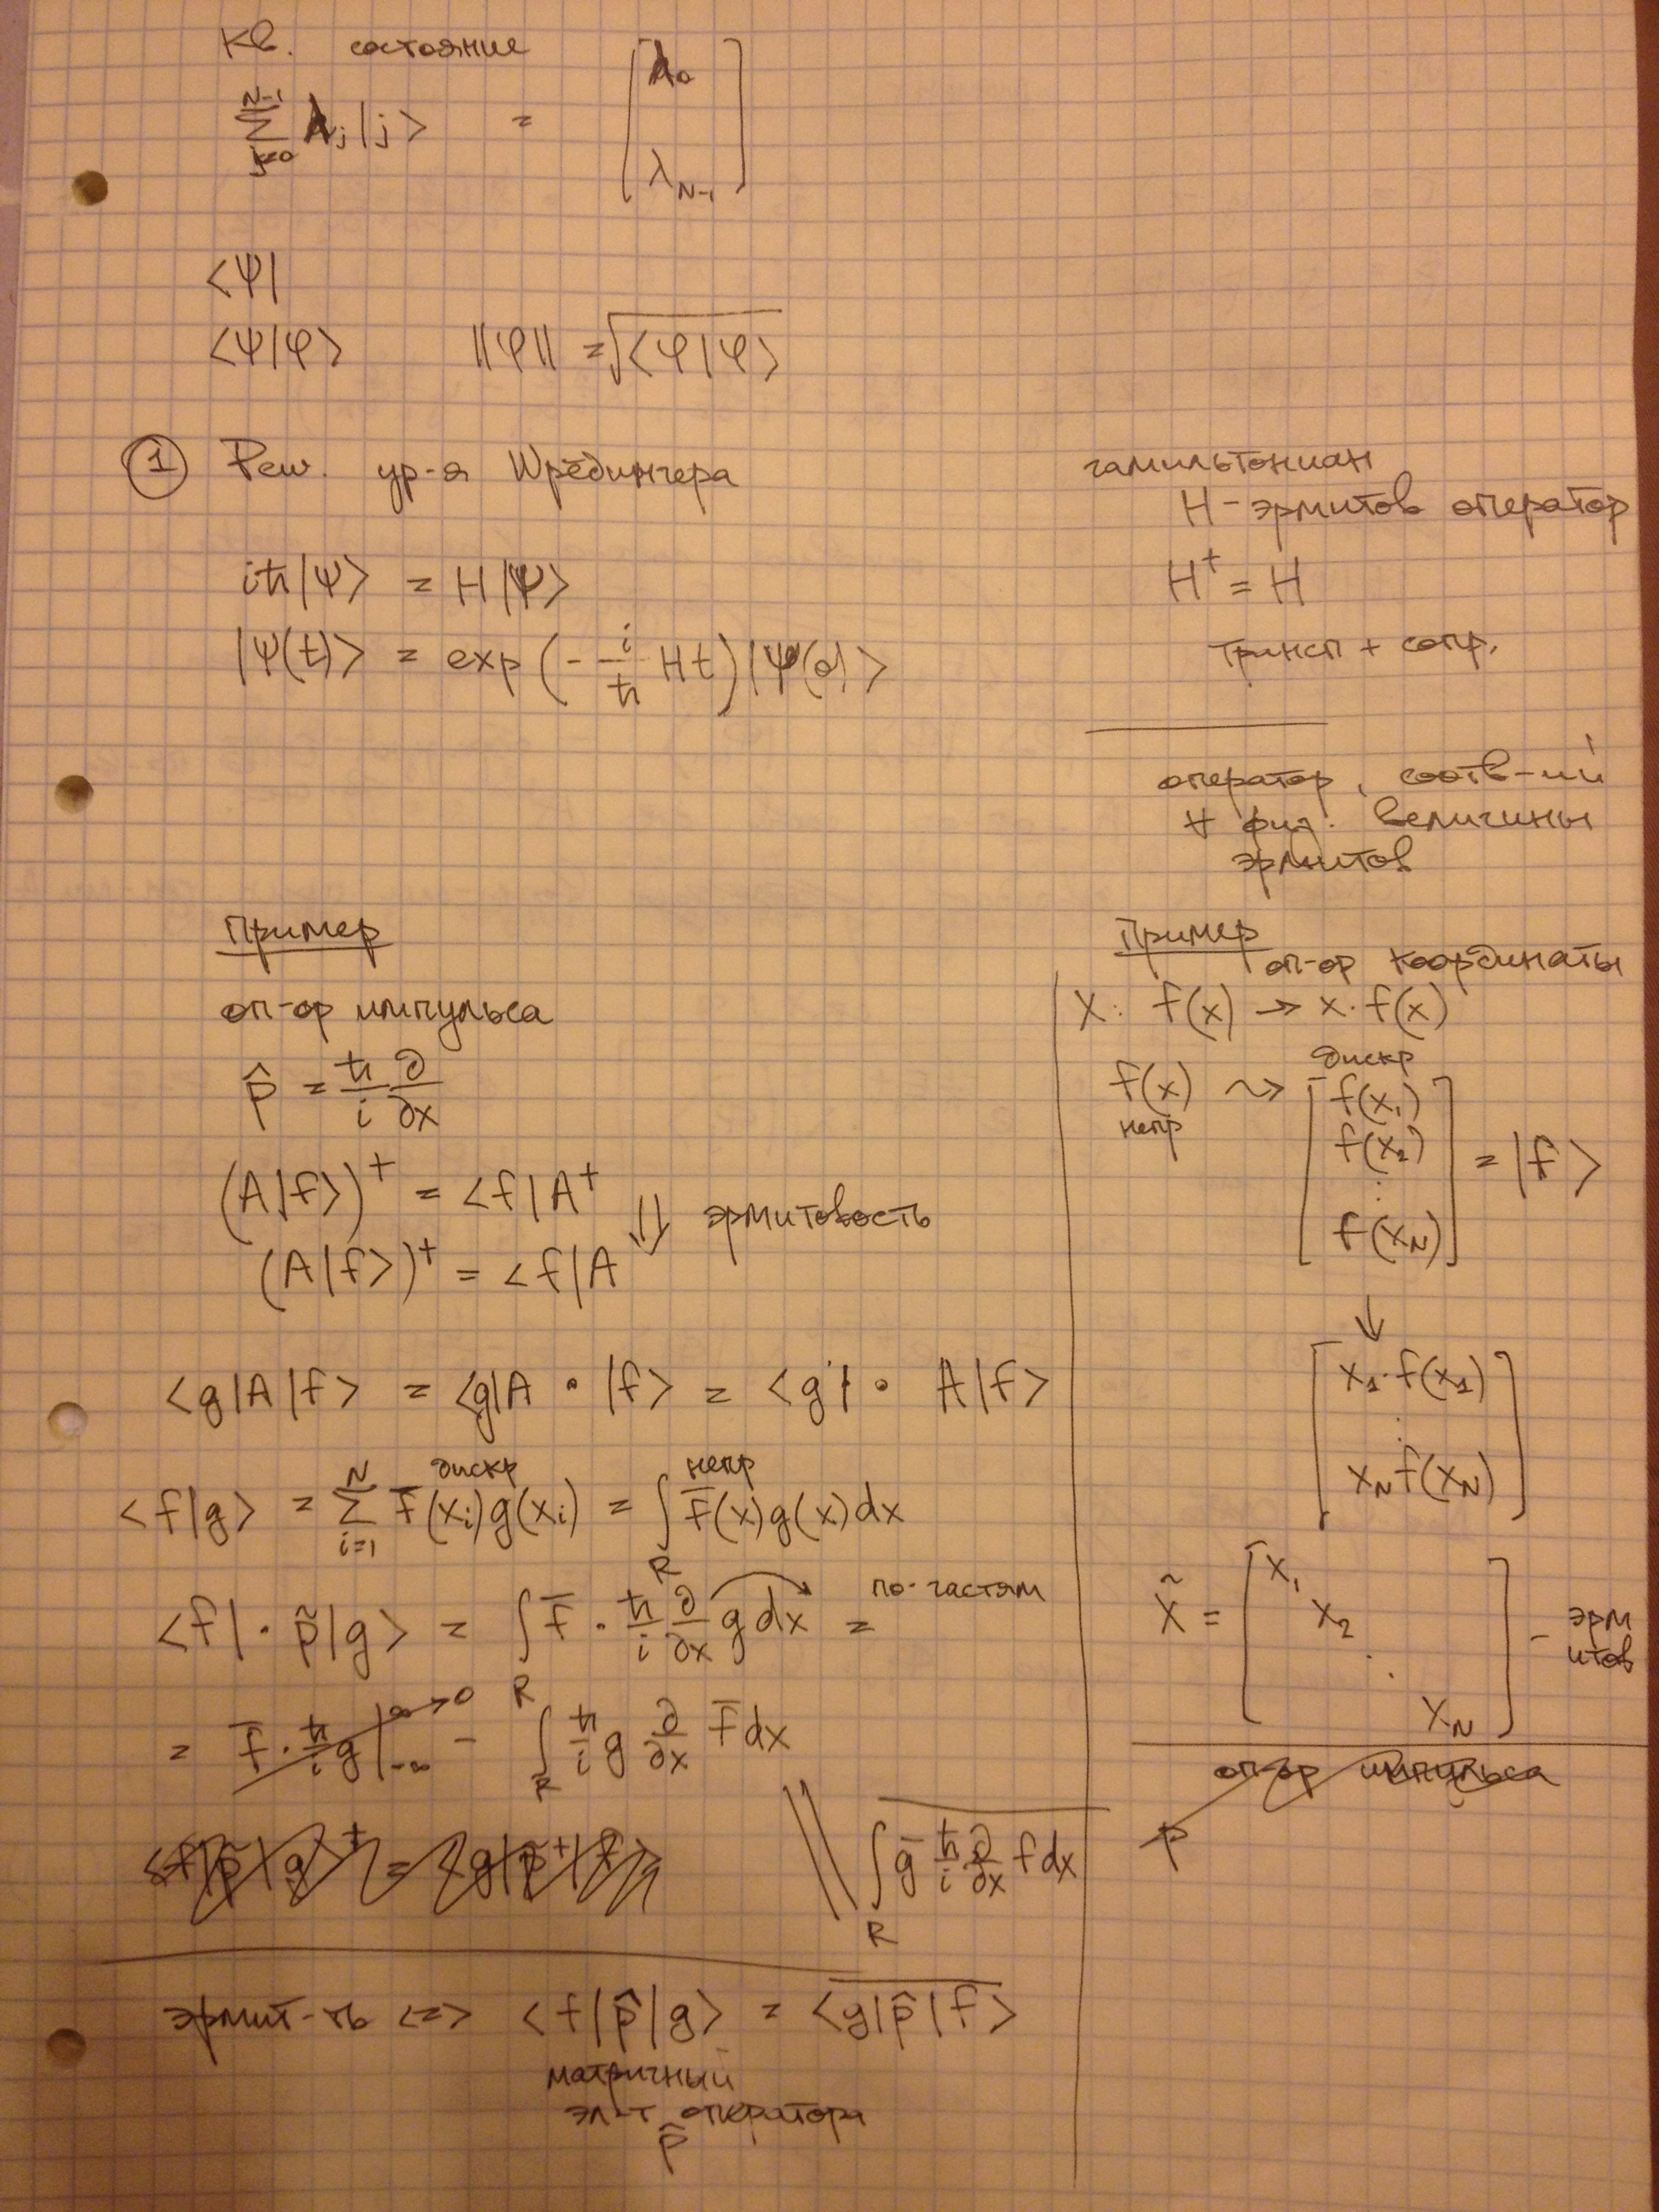 Кв. состояние
N-1
∑ λj |j> = [λ0
j=0 λN-1]
<Ψ|
<Ψ|φ> ||φ|| = √<φ|φ>
① Реш. ур-я Шрёдингера
iħ|Ψ> = H|Ψ>
|Ψ(t)> = exp(- i/ħ Ht)|Ψ(0)>
гамильтониан
H - эрмитов оператор
H⁺ = H
трнсп + сопр.
оператор, соотв-ий
∀ физ. величины
эрмитов
Пример
оп-ор импульса
p̂ = ħ/i ∂/∂x
(A|f>)⁺ = <f|A⁺
(A|f>)⁺ = <f|A ⇓ эрмитовость
<g|A|f> = <g|A · |f> = <g| · A|f>
дискр непр
<f|g> = ∑ᵢ₌₁ᴺ f̅(xᵢ)g(xᵢ) = ∫R f̅(x)g(x)dx
<f| · p̃|g> = ∫R f̅ · ħ/i ∂/∂x g dx = по-частям
= f̅ · ħ/i g |∞ -∞ → 0 - ∫R ħ/i g ∂/∂x f̅ dx
<f|p̃|g>⁺ = <g|p̃⁺|f>
|| ∫R g̅ ħ/i ∂/∂x f dx
эрмит-ть <=> <f|p̂|g> = <g|p̂|f>
матричный
эл-т оператора
p̂
Пример
оп-ор координаты
X: f(x) → x · f(x)
дискр
f(x) ⇝ [f(x₁)
непр f(x₂)
:
f(xN)] = |f>
↓
[x₁ · f(x₁)
:
xN f(xN)]
X̃ = [x₁
x₂
. .
xN] - эрм
итов
оп-ор импульса
p